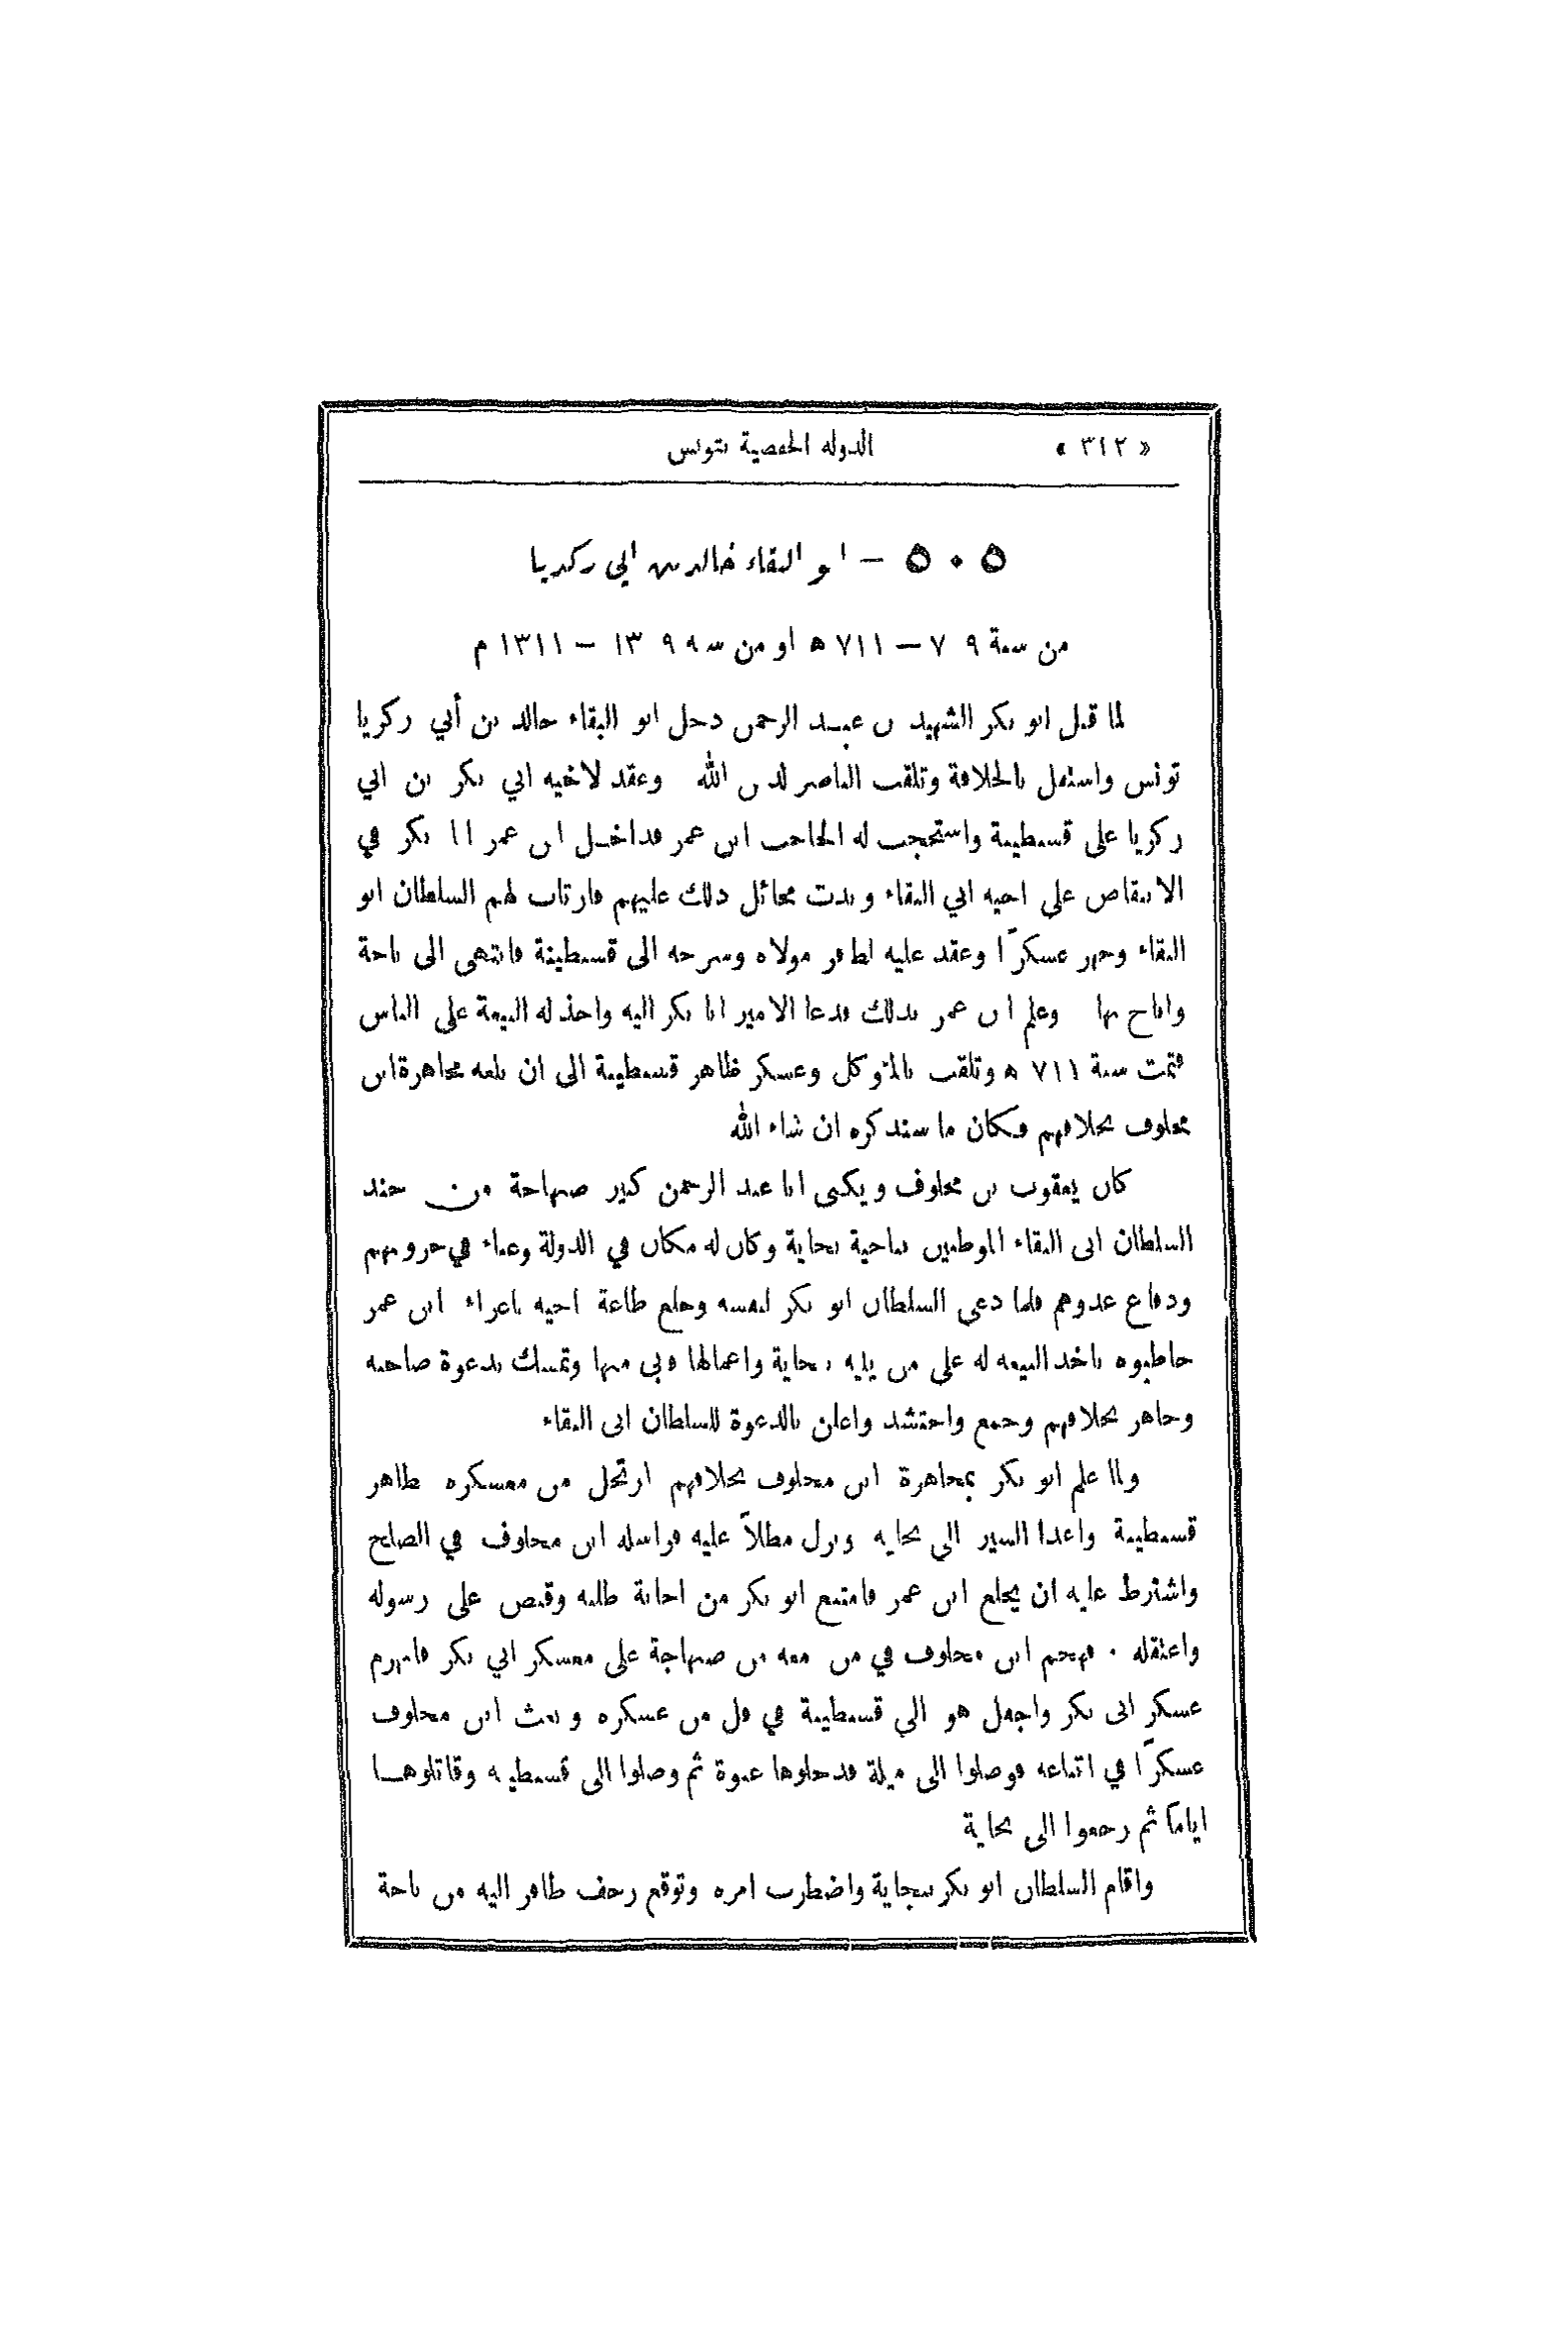 « ٣١٢ » الدولة الحفصية بتونس
٥٠٥ – ابو البقاء خالد بن ابي زكريا
من سنة ٧٠٩ – ٧١١ ه او من سنة ١٣٠٩ – ١٣١١ م
لما قتل ابو بكر الشهيد بن عبد الرحمن دخل ابو البقاء خالد بن أبي زكريا
تونس واستقل بالخلافة وتلقب الناصر لدين الله وعقد لاخيه ابي بكر بن ابي
زكريا على قسطينة واستحجب له الحاجب ابن عمر فداخل ابن عمر ابا بكر في
الانتقاض على اخيه ابي البقاء وبدت مخائل ذلك عليهم فارتاب لهم السلطان ابو
البقاء وجهز عسكرًا وعقد عليه لظافر مولاه وسرحه الى قسطينة فانتهى الى باجة
واناخ بها وعلم ابن عمر بذلك فدعا الامير ابا بكر اليه واخذ له البيعة على الناس
فتمت سنة ٧١١ ه وتلقب بالمتوكل وعسكر ظاهر قسطينة الى ان بلغه مجاهرة ابن
مخلوف بخلافهم فكان ما سنذكره ان شاء الله
كان يعقوب بن مخلوف ويكنى ابا عبد الرحمن كبير صنهاجة من جند
السلطان ابى البقاء الموطنين بناحية بجاية وكان له مكان في الدولة وغناء في حروبهم
ودفاع عدوهم فلما دعى السلطان ابو بكر لنفسه وخلع طاعة اخيه باغراء ابن عمر
خاطبوه باخذ البيعه له على من يليه ببجاية واعمالها فابى منها وتمسك بدعوة صاحبه
وجاهر بخلافهم وجمع واحتشد واعلن بالدعوة للسلطان ابى البقاء
ولما علم ابو بكر بمجاهرة ابن مخلوف بخلافهم ارتحل من معسكره ظاهر
قسطينة واغذا السير الى بجايه ونزل مطلاً عليه فراسله ابن مخلوف في الصلح
واشترط عليه ان يخلع ابن عمر فامتنع ابو بكر من اجابة طلبه وقبض على رسوله
واعتقله . فهجم ابن مخلوف في من معه من صنهاجة على معسكر ابي بكر فانهزم
عسكر ابى بكر واجفل هو الى قسطينة في فل من عسكره وبعث ابن مخلوف
عسكرًا في اتباعه فوصلوا الى ميلة فدخلوها عنوة ثم وصلوا الى قسطينة وقاتلوها
اياماً ثم رجعوا الى بجاية
واقام السلطان ابو بكر ببجاية واضطرب امره وتوقع زحف ظافر اليه من باجة